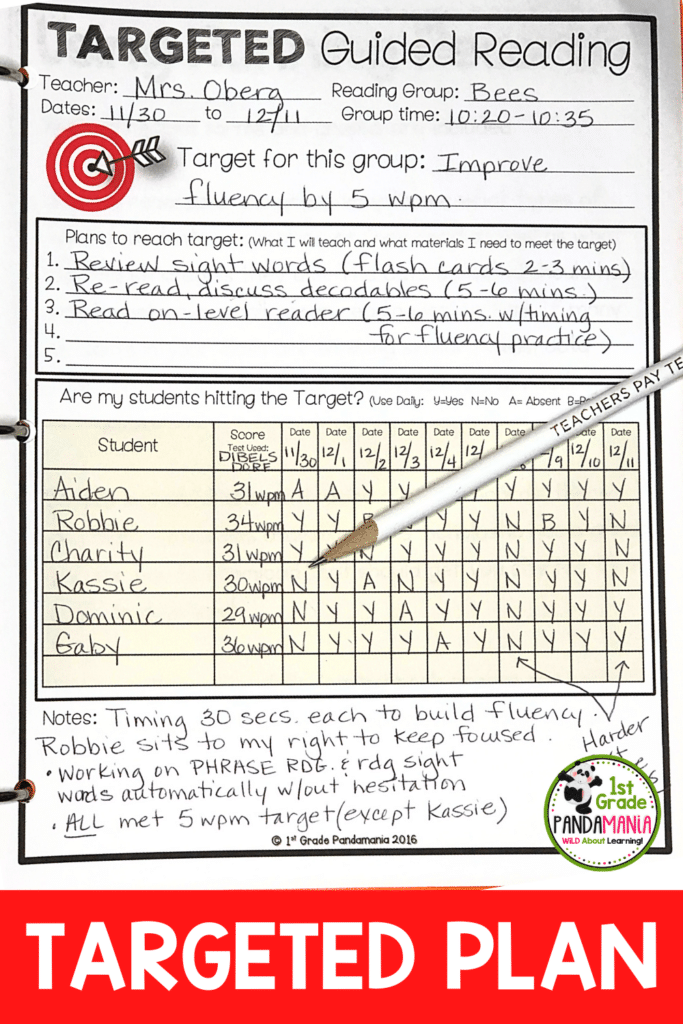 TARGETED Guided Reading
Teacher: Mrs. Oberg Reading Group: Bees
Dates: 11/30 to 12/11 Group time: 10:20-10:35
Target for this group: Improve
fluency by 5 wpm.
Plans to reach target: (What I will teach and what materials I need to meet the target)
1. Review sight words (flash cards 2-3 mins)
2. Re-read, discuss decodables (5-6 mins.)
3. Read on-level reader (5-6 mins. w/timing
4. for fluency practice)
5.
Are my students hitting the Target? (Use Daily: Y=Yes N=No A= Absent
TEACHERS PAY TE
Student Score Date Date Date Date Date Date Date Date Date
Test Used:
DIBELS DORF 11/30 12/1 12/2 12/3 12/4 12/ /9 12/10 12/11
Aiden 31wpm A A Y Y Y Y Y Y
Robbie 34wpm Y Y Y Y N B Y N
Charity 31wpm Y N Y Y Y N Y Y N
Kassie 30wpm N Y A N Y Y N Y Y N
Dominic 29wpm N Y Y A Y Y N Y Y Y
Gaby 36wpm N Y Y Y A Y N Y Y Y
Notes: Timing 30 secs. each to build fluency.
Robbie sits to my right to keep foused.
Harder
• Working on PHRASE RDG. & rdg sight
words automatically w/out hesitation
• ALL met 5 wpm target (except Kassie)
© 1st Grade Pandamania 2016
1st
Grade
PANDAMANIA
WILD About Learning!
TARGETED PLAN